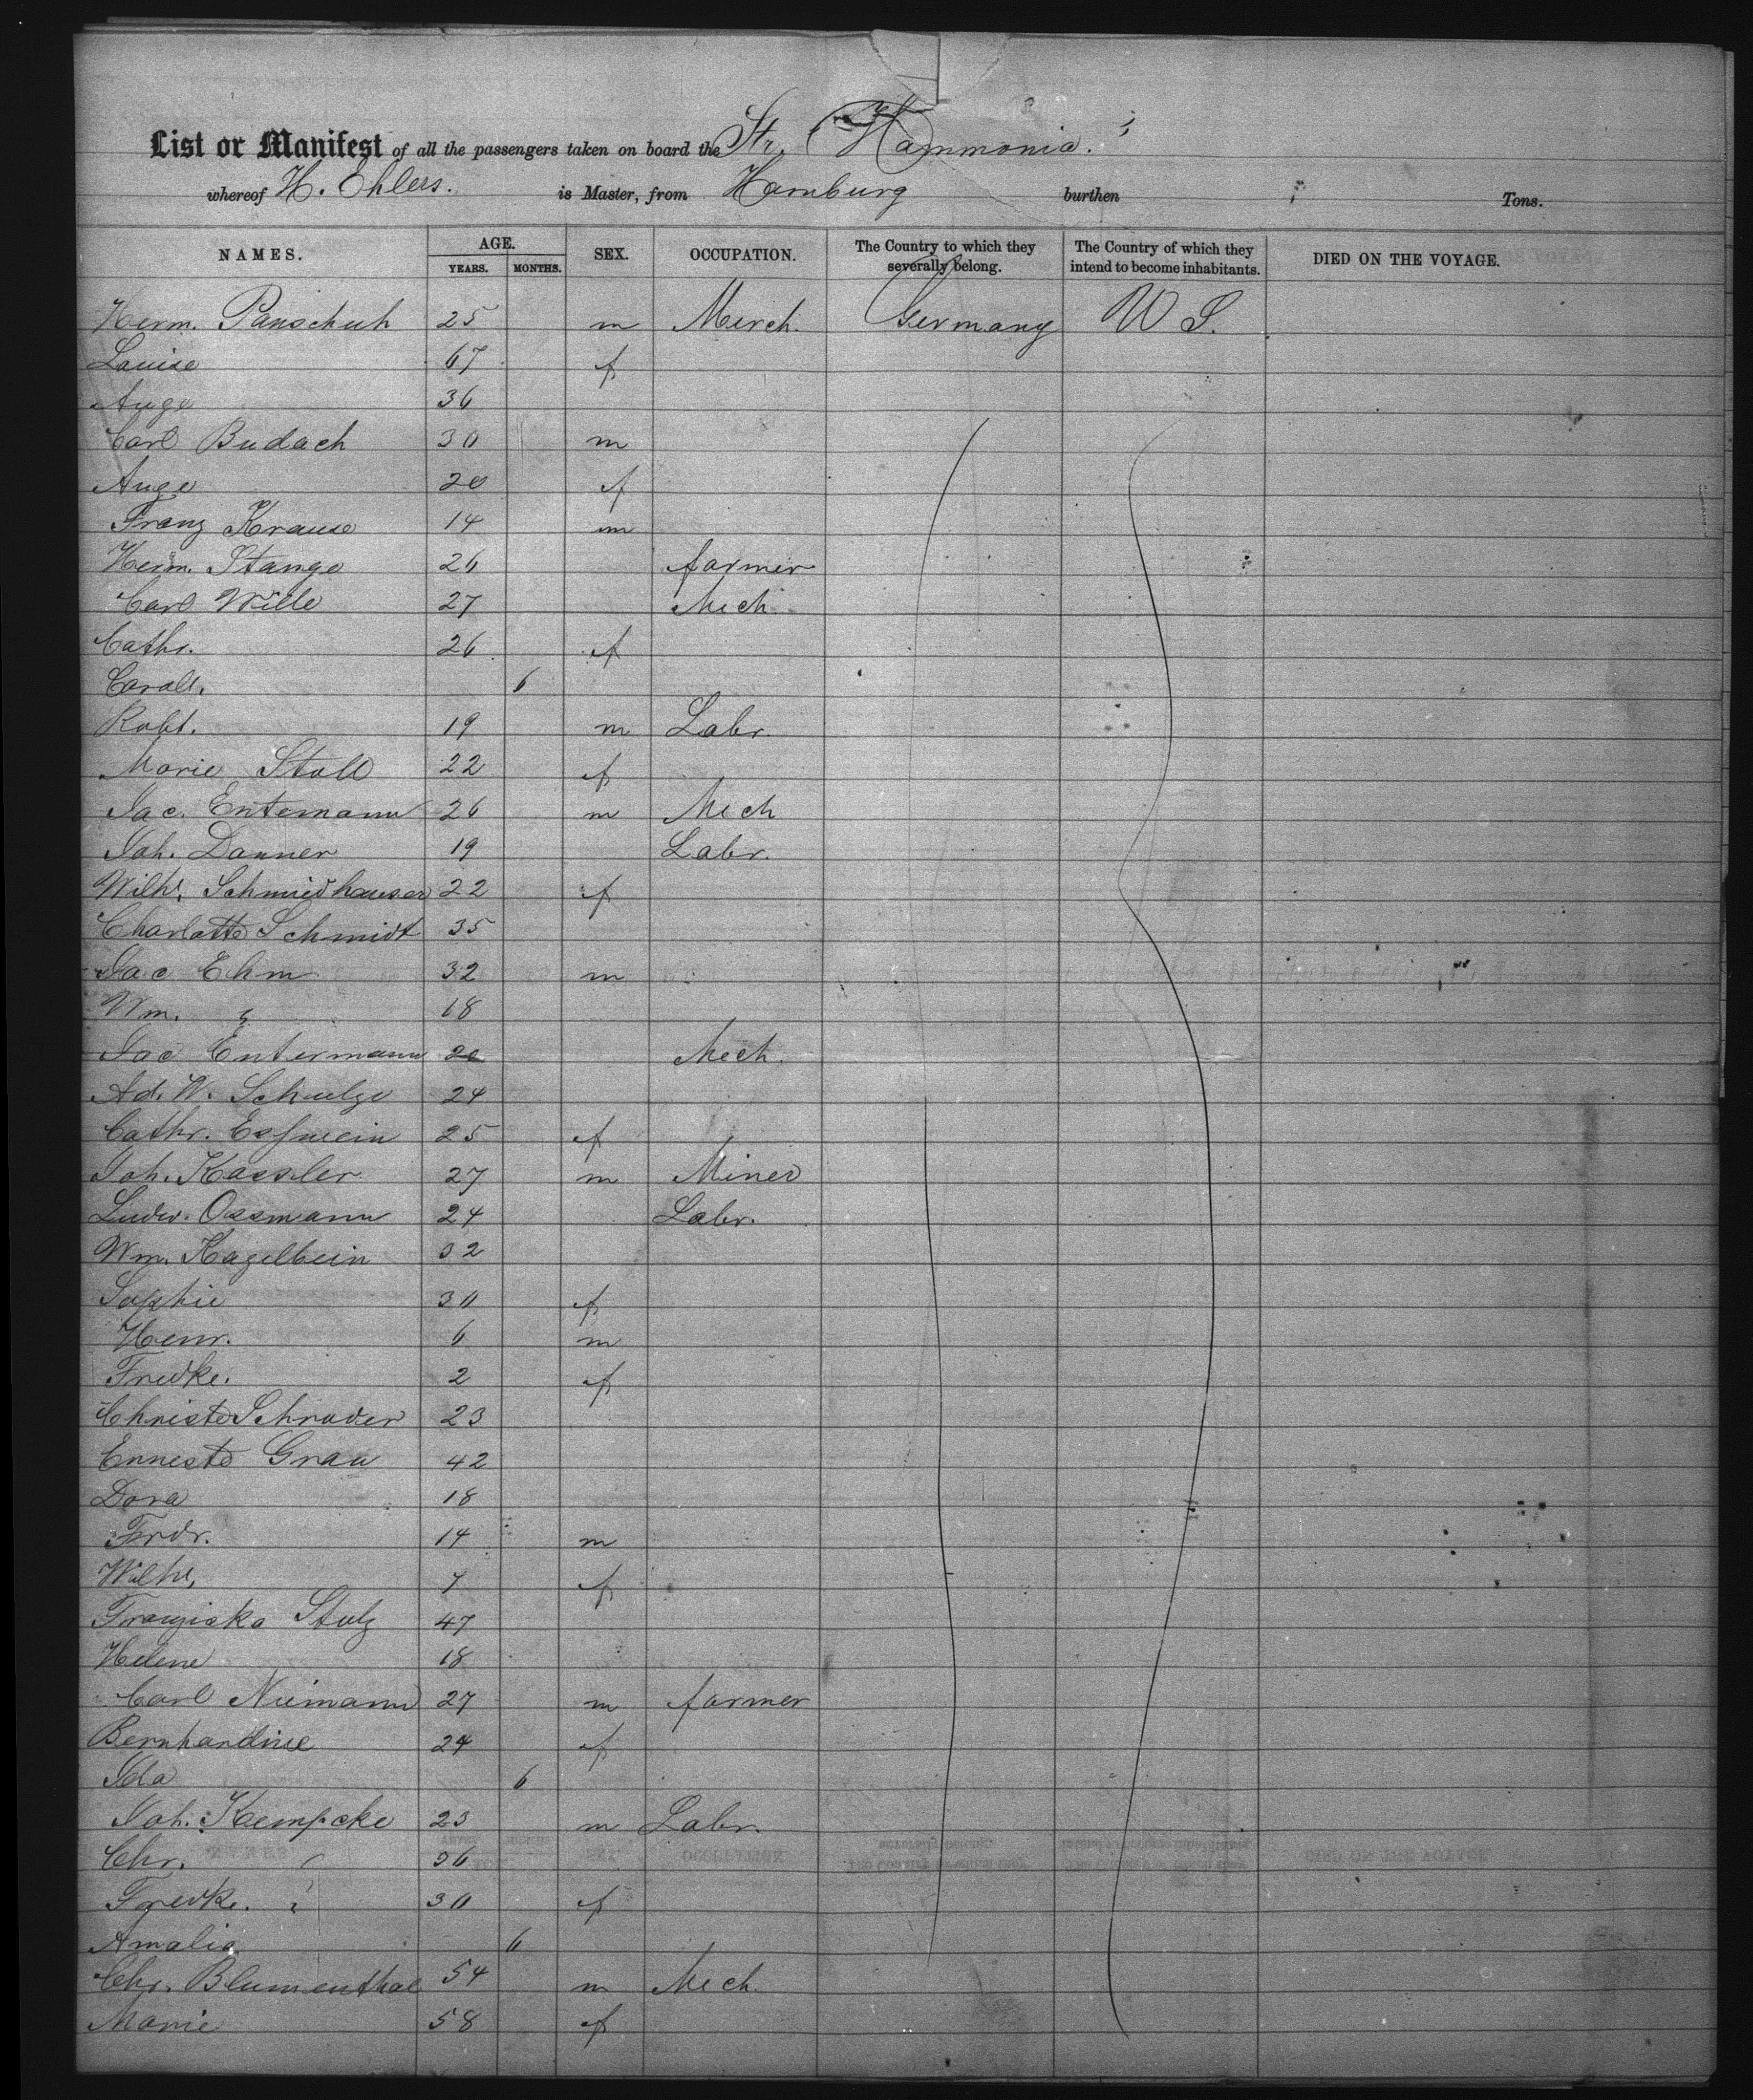 List or Manifest of all the passengers taken on board the Str. "Hammonia"
whereof H. Ehlers. is Master, from Hamburg burthen Tons.
NAMES. AGE. YEARS. MONTHS. SEX. OCCUPATION. The Country to which they severally belong. The Country of which they intend to become inhabitants. DIED ON THE VOYAGE.
Herm. Panschuh 25 m Merch. Germany U S.
Louise 67 f
Auge 36
Carl Budach 30 m
Auge 20 f
Franz Krause 14 m
Herm. Stange 26 farmer
Carl Wille 27 Mech.
Cathr. 26 f
Caroll. 6
Robt. 19 m Labr.
Marie Stoll 22 f
Jac. Entemann 26 m Mech
Joh. Danner 19 Labr.
Wilhe. Schmiedhauser 22 f
Charlotte Schmidt 35
Jac Ehm 32 m
Wm. " 18
Jac Entermann 20 Mech.
Ad. W. Schulze 24
Cathr. Esswein 25 f
Joh. Kassler 27 m Miner
Ludw. Ossmann 24 Labr.
Wm. Hagelbein 32
Sophie 30 f
Henr. 6 m
Fredke. 2 f
Christe Schrader 23
Erneste Grau 42
Dora 18
Frdr. 14 m
Wilhe. 7 f
Franziska Stolz 47
Helene 18
Carl Niemann 27 m farmer
Bernhardine 24 f
Ida 6
Joh. Kempcke 23 m Labr.
Chr. " 36
Fredke. " 30 f
Amalia 6
Chr. Blumenthal 54 m Mech.
Marie 58 f